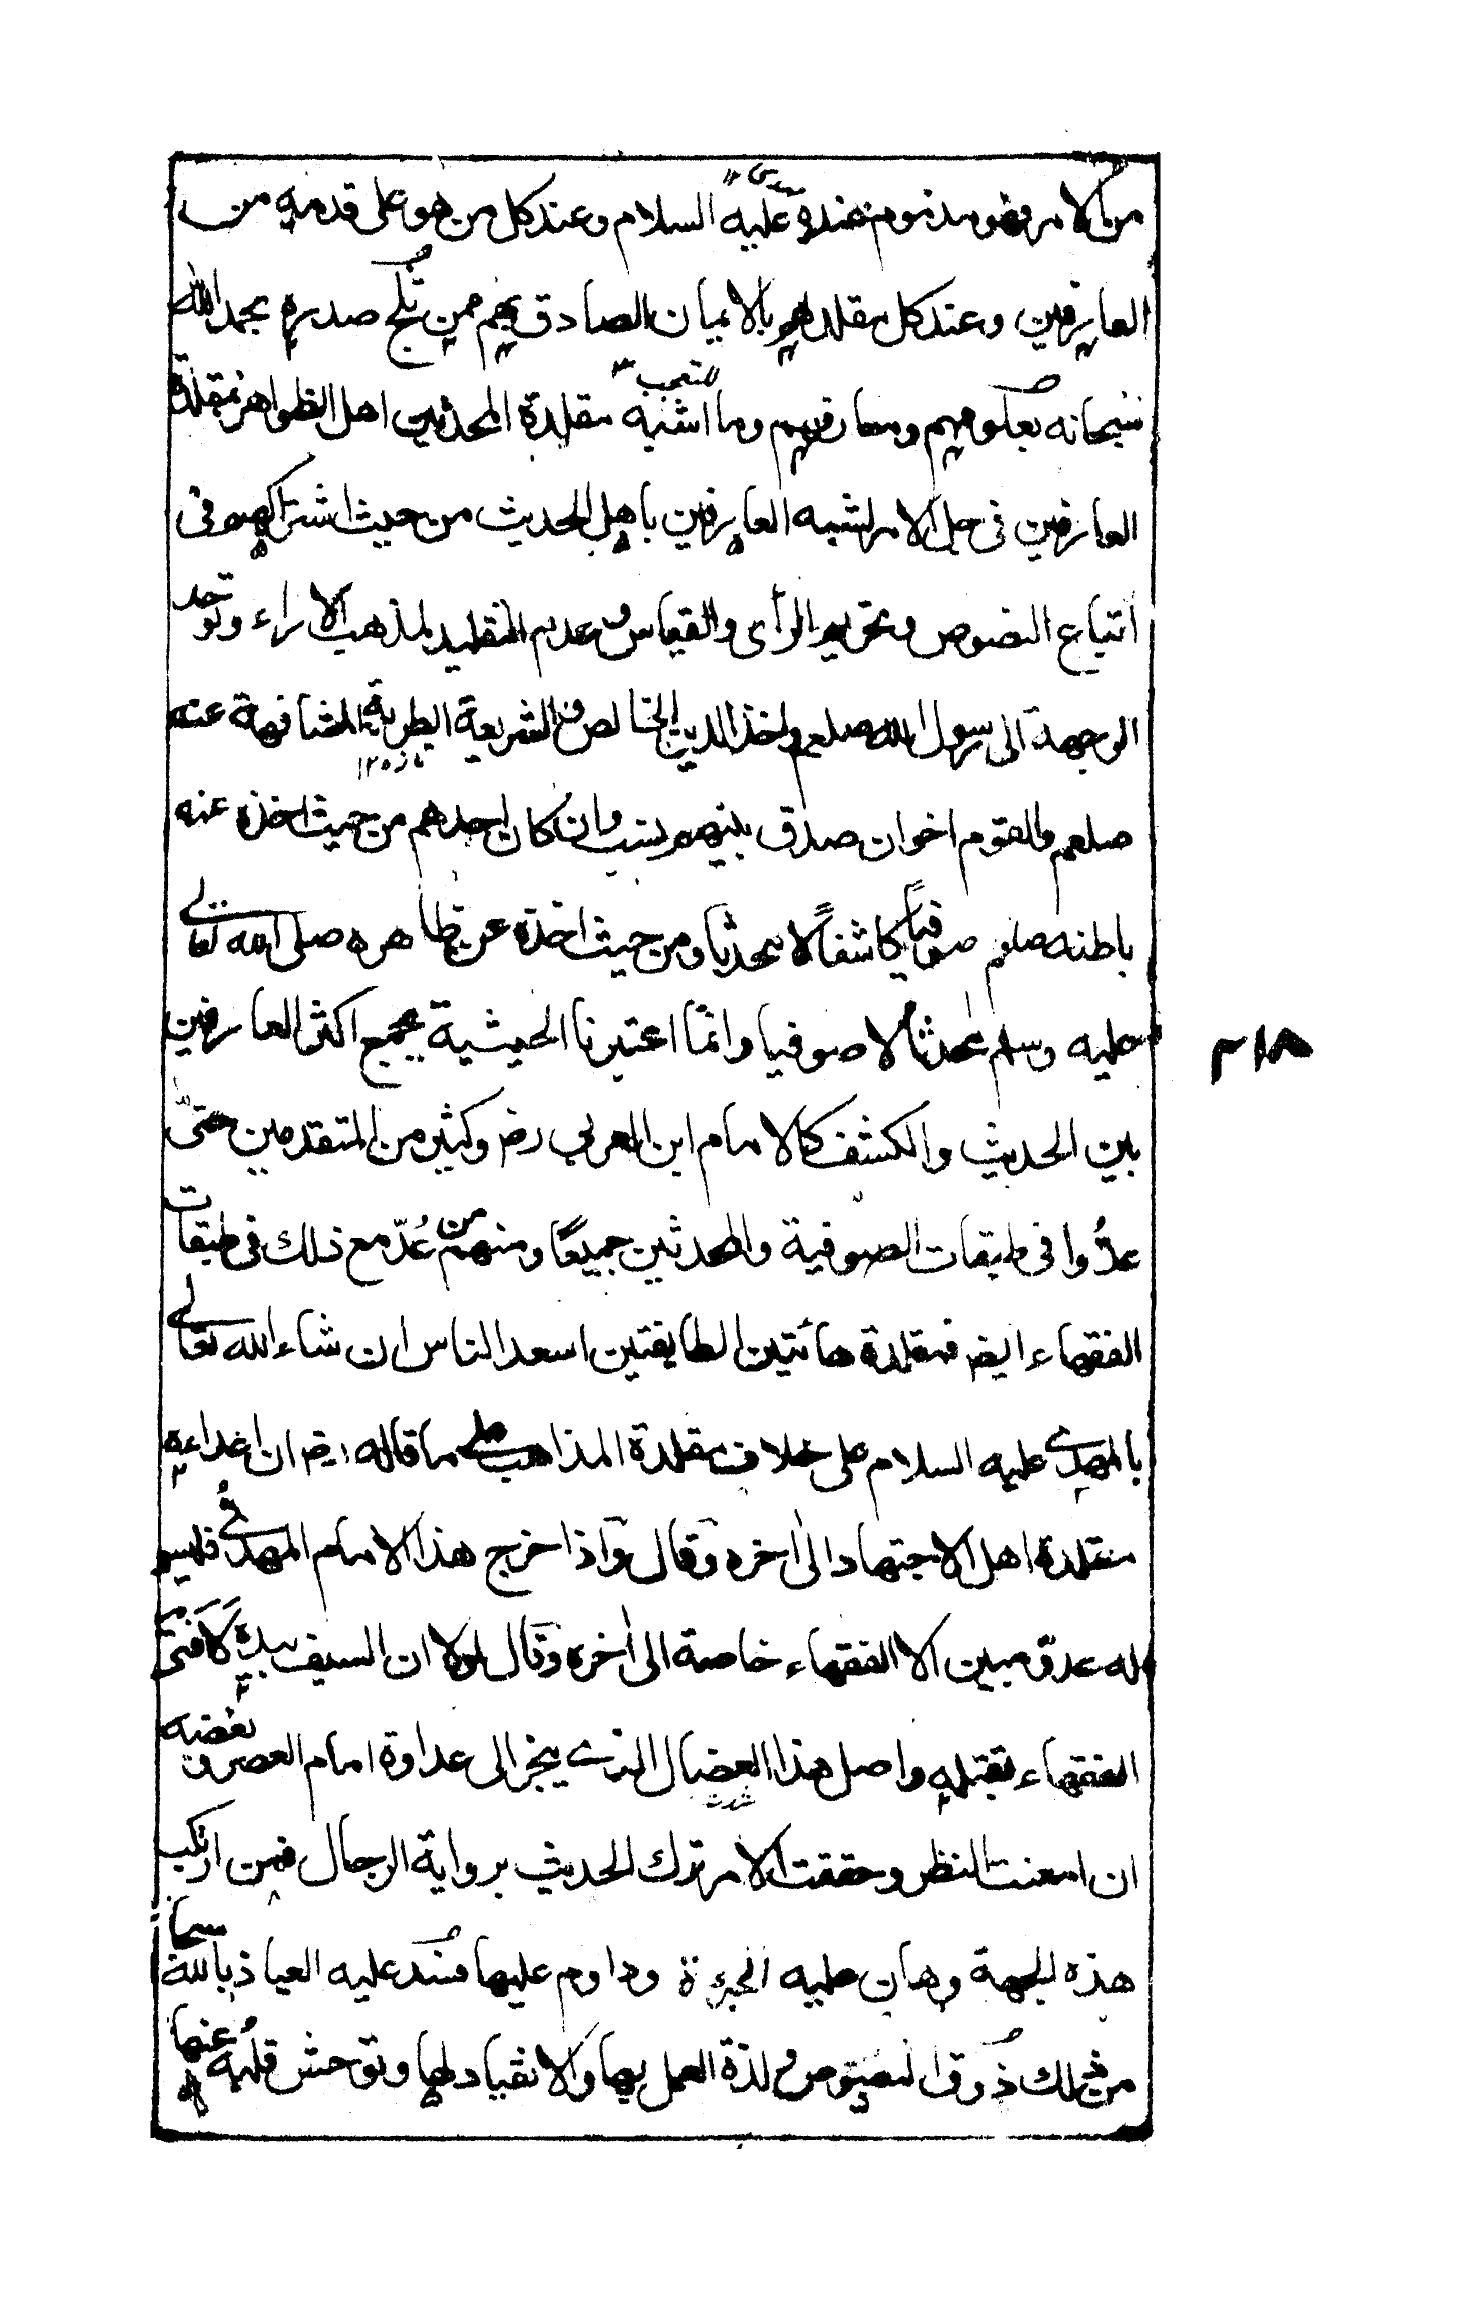 من الامر فهو مذموم عنده عليه السلام وعند كل من هو على قدمه من
العارفين وعند كل مقلد لهم بالايمان الصادق بهم ممن ثلج صدره بحمد الله
سبحانه بعلومهم ومعارفهم وما اشبه مقلدة المحدثين اهل الظواهر بمقلدة
للتعجب
العارفين في جل الامر لشبه العارفين باهل الحديث من حيث اشتراكهم في
اتباع النصوص وتحريم الرأى والقياس وعدم التقليد لمذهب الاراء وتوحد
الوجهة الى رسول الله صلعم واخذ الدين الخالص والشريعة الطرية المشافهة عنه
تازه ١٢
صلعم والقوم اخوان صدق بينهم نسب وان كان احدهم من حيث اخذه عنه
باطنه صلعم صوفياً كاشفاً لا محدثا ومن حيث اخذه عن ظاهره صلى الله تعالى
عليه وسلم محدثا لا صوفيا وانما اعتبرنا الحيثية لجمع اكثر العارفين
٢١٨
بين الحديث والكشف كالامام ابن العربي رضـ وكثير من المتقدمين حتى
عدُّوا في طبقات الصوفية والمحدثين جميعًا ومنهم من عُدّ مع ذلك في طبقات
الفقهاء ايضـ فمقلدة هاتين الطايفتين اسعد الناس ان شاء الله تعالى
بالمهدى عليه السلام على خلاف مقلدة المذاهب على ما قاله رضـ ان اعداءه
مقلدة اهل الاجتهاد الى اخره وقال واذا خرج هذا الامام المهدى فليس
له عدو مبين الا الفقهاء خاصة الى اخره وقال لولا ان السيف بيده لافتى
الفقهاء بقتله واصل هذا العضال الذى ينجر الى عداوة امام العصر وبغضه
ان امعنت النظر وحققت الامر ترك الحديث برواية الرجال فمن ارتكب
هذه وهان عليه الجرءة وداوم عليها فسد عليه العياذ بالله سبحانه
من ذلك ذوق النصوص ولذة العمل بها والانقياد لها وتوحش قلبه عنها